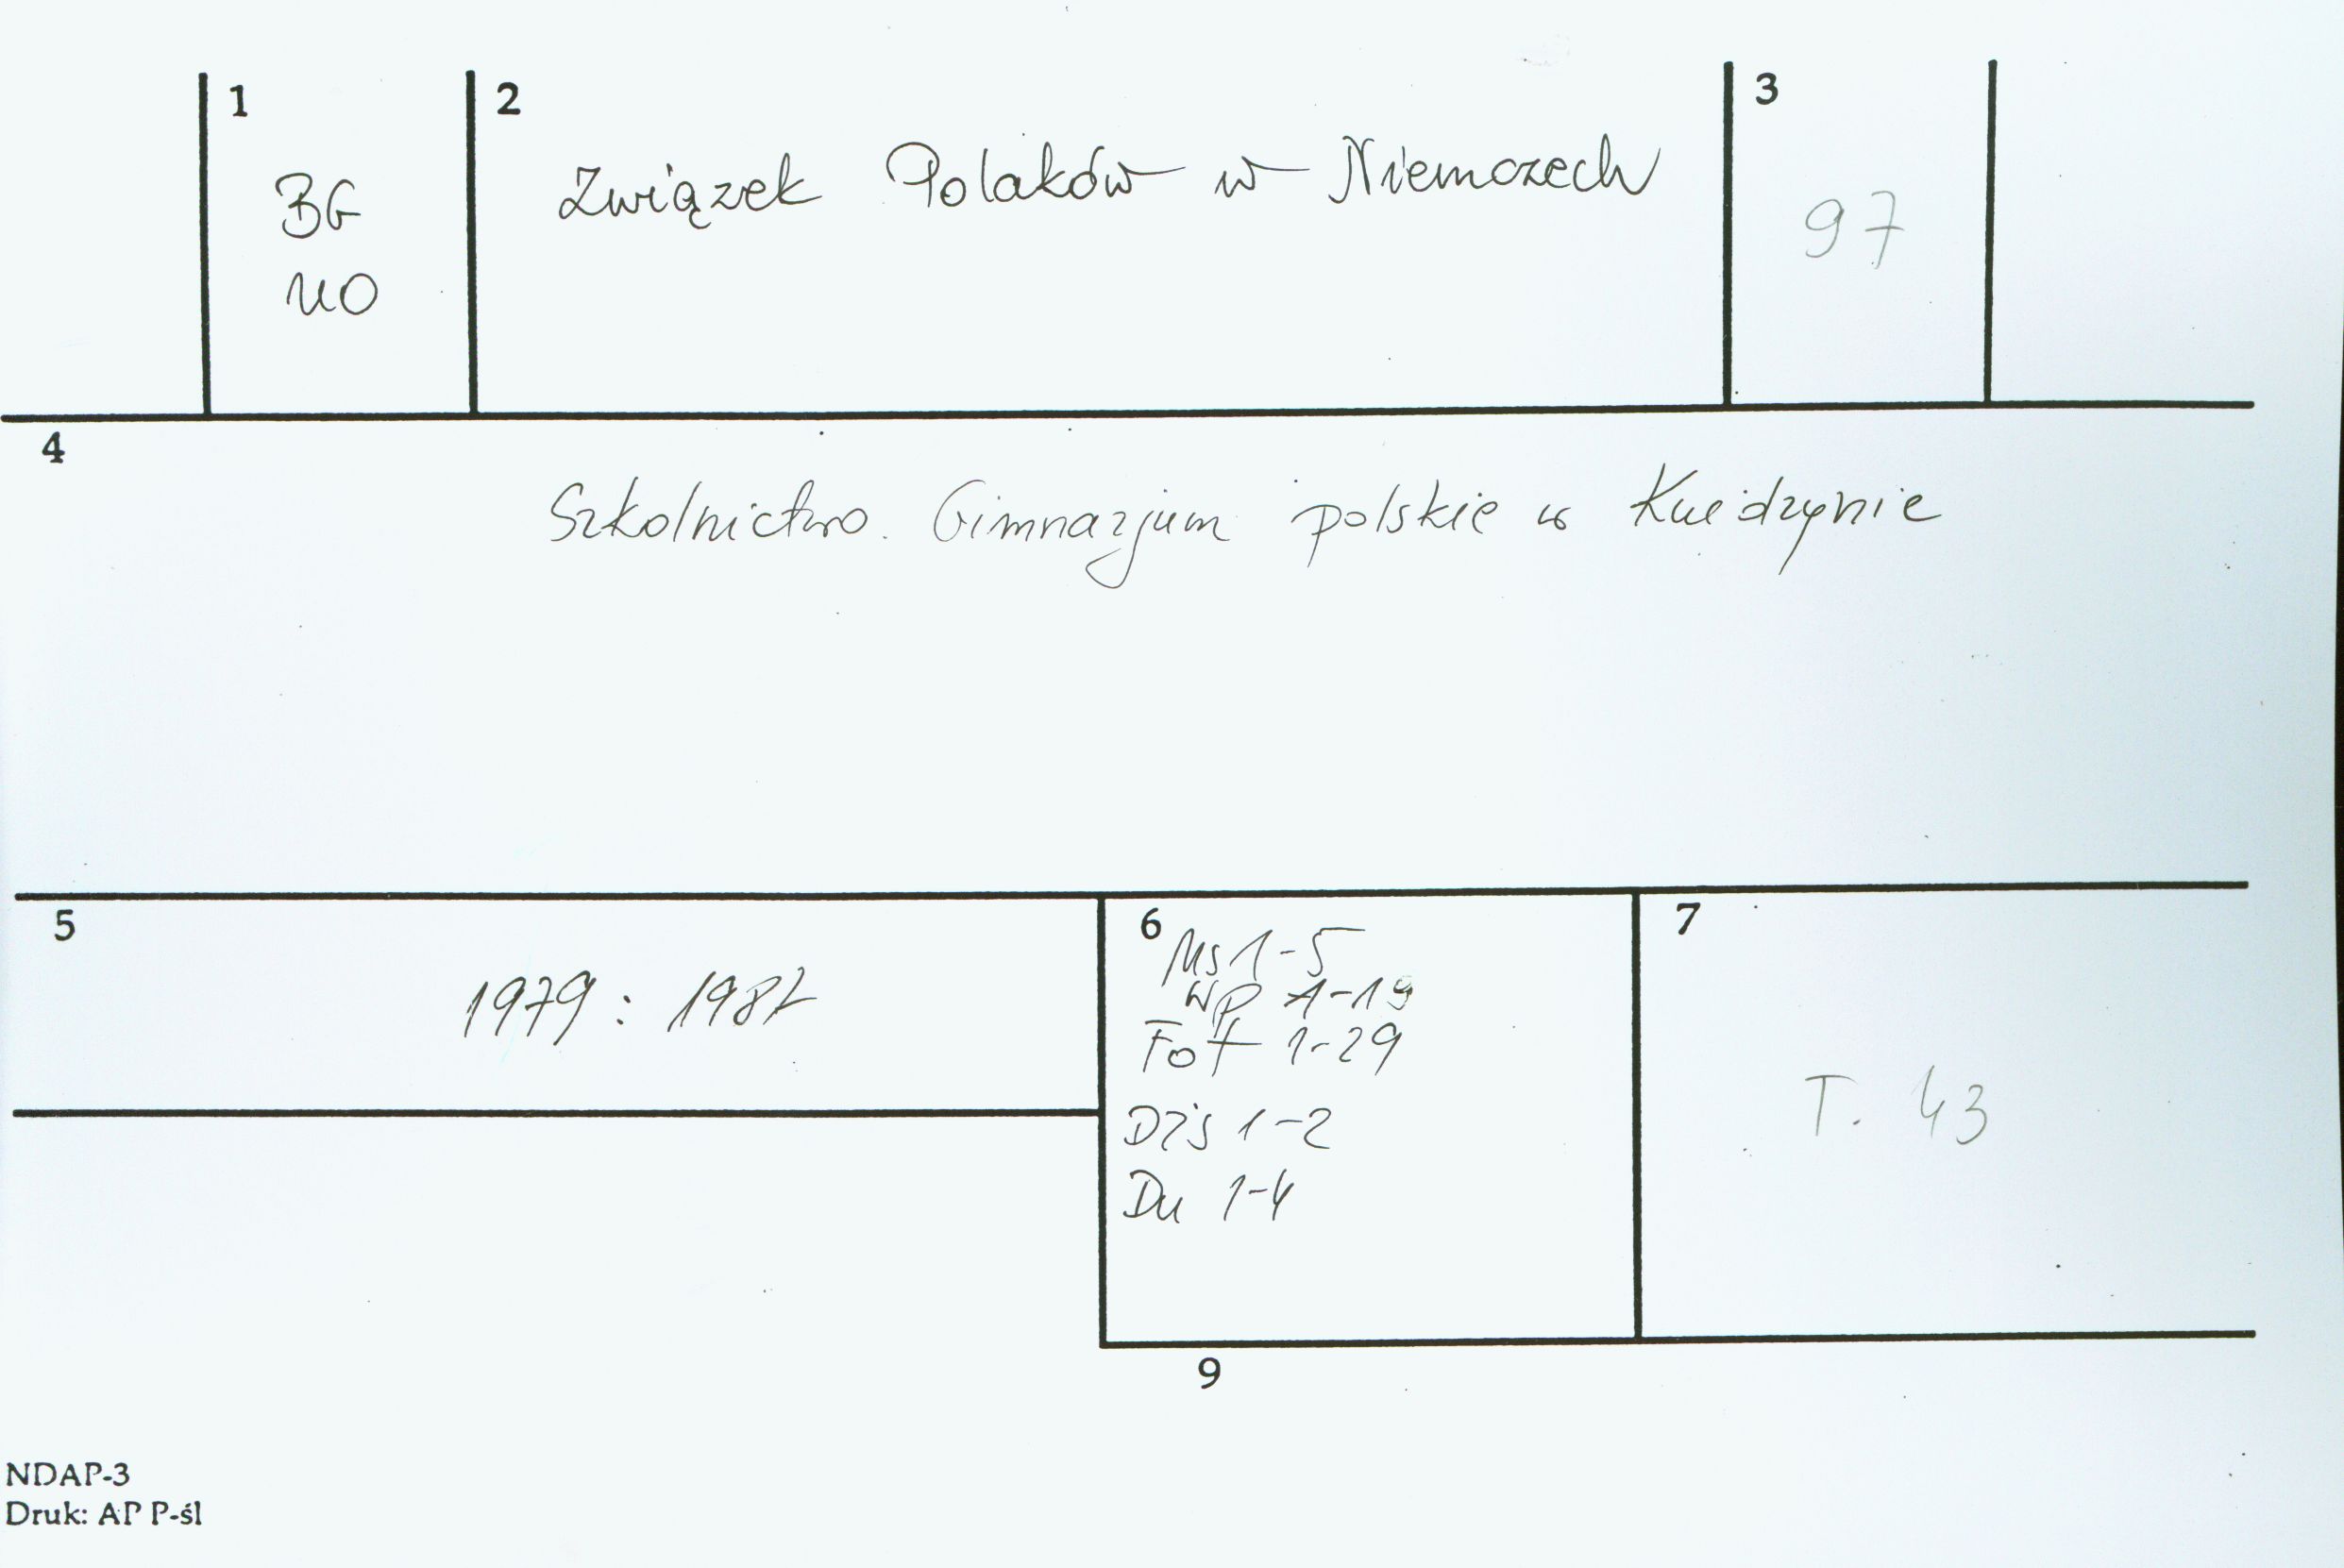 1
BG
UO
2
Związek Polaków w Niemczech
3
97
4
Szkolnictwo. Gimnazjum polskie w Kwidzynie
5
1979 : 1982
6
Ms 1-5
WP 1-19
Fot 1-29
DŻS 1-2
Du 1-4
7
T. 43
9
NDAP-3
Druk: AP P-śl